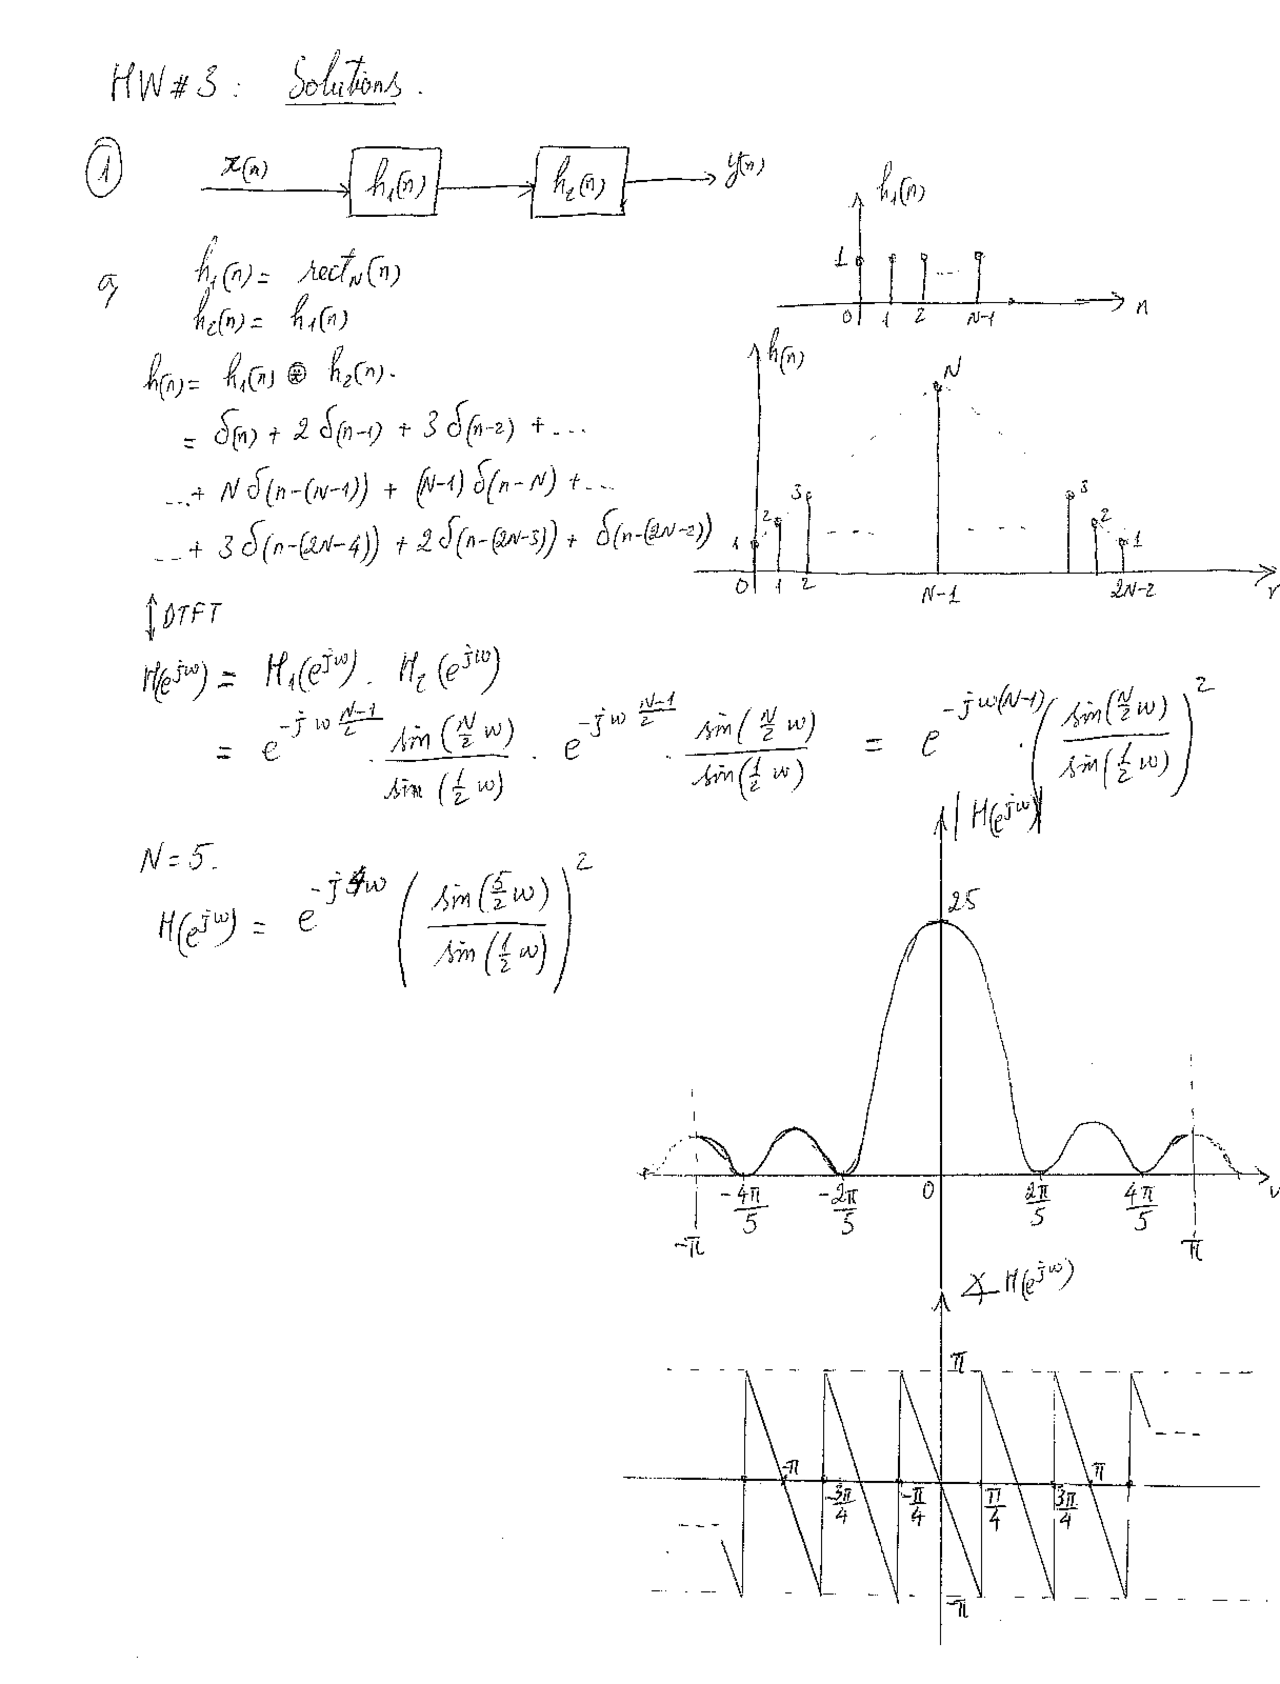 HW#3: Solutions.
1
x(n) h₁(n) h₂(n) y(n)
h₁(n)
1
0 1 2 ... N-1 n
a) h₁(n) = rect_N(n)
h₂(n) = h₁(n)
h(n) = h₁(n) ⊛ h₂(n).
= δ(n) + 2 δ(n-1) + 3 δ(n-2) + ...
...+ N δ(n-(N-1)) + (N-1) δ(n-N) + ...
...+ 3 δ(n-(2N-4)) + 2 δ(n-(2N-3)) + δ(n-(2N-2))
h(n)
N
1 2 3 3 2 1
0 1 2 N-1 2N-2
↕ DTFT
H(e^{jω}) = H₁(e^{jω}) . H₂(e^{jω})
= e^{-jω (N-1)/2} . sin(N/2 ω) / sin(1/2 ω) . e^{-jω (N-1)/2} . sin(N/2 ω) / sin(1/2 ω) = e^{-jω(N-1)} . (sin(N/2 ω) / sin(1/2 ω))²
N = 5.
H(e^{jω}) = e^{-j4ω} (sin(5/2 ω) / sin(1/2 ω))²
|H(e^{jω})|
25
-π -4π/5 -2π/5 0 2π/5 4π/5 π
∡ H(e^{jω})
π
-π -3π/4 -π/4 π/4 3π/4 π
-π